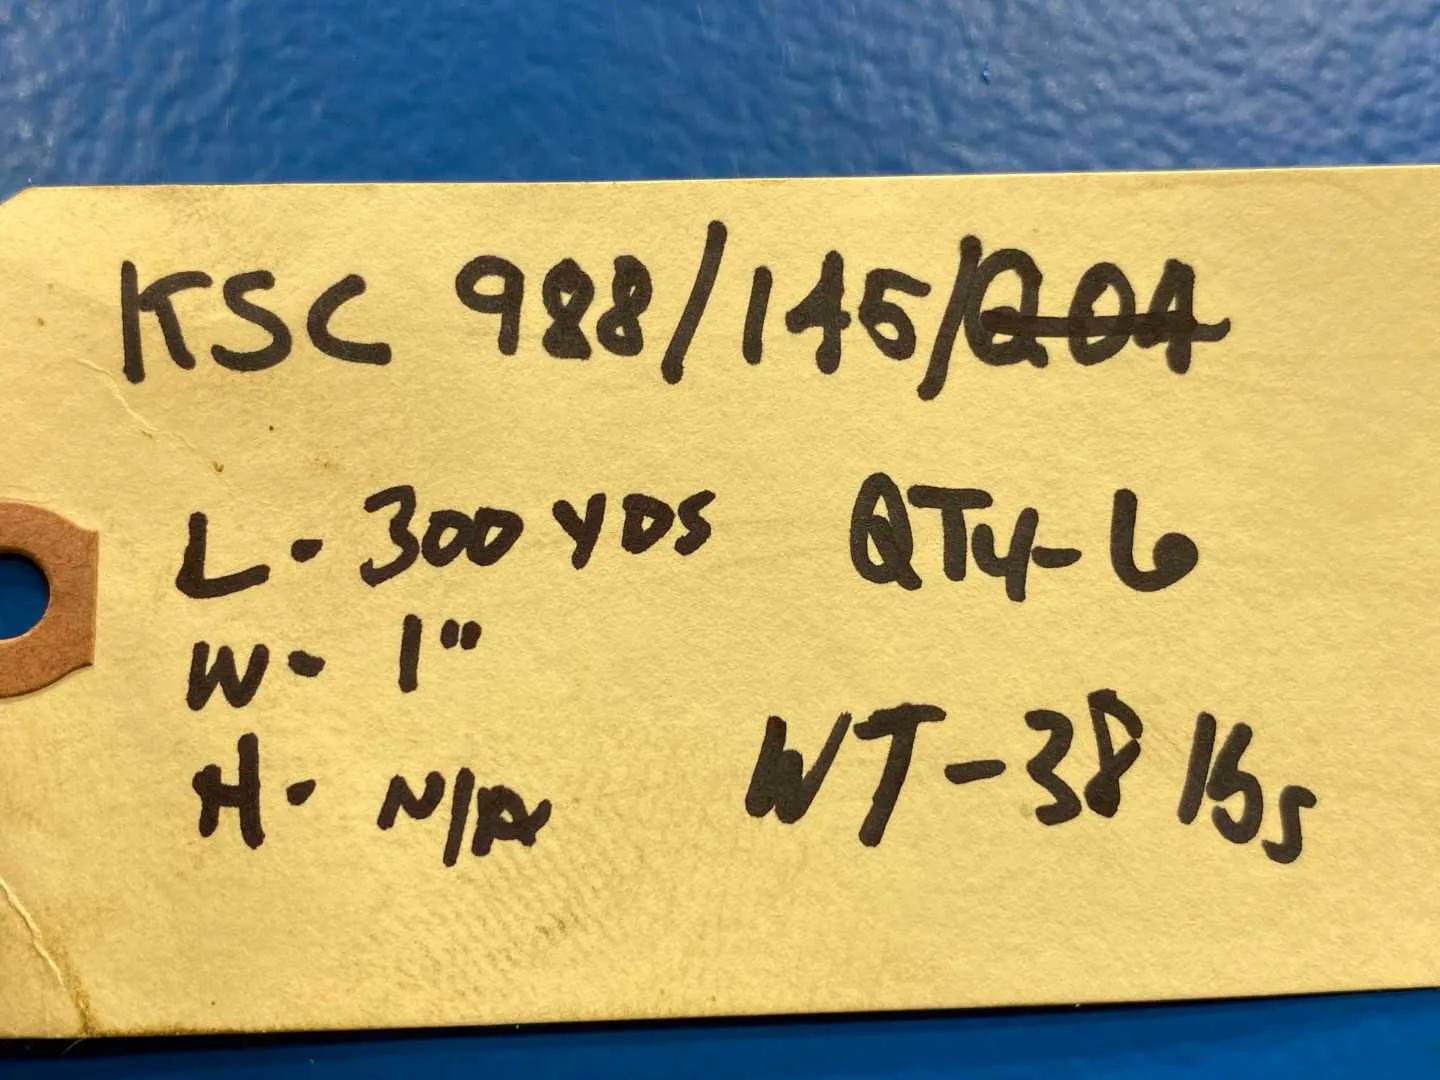 KSC 988/145/Q04
L - 300 YDS QTY - 6
W - 1"
H - N/A
WT - 38 lbs